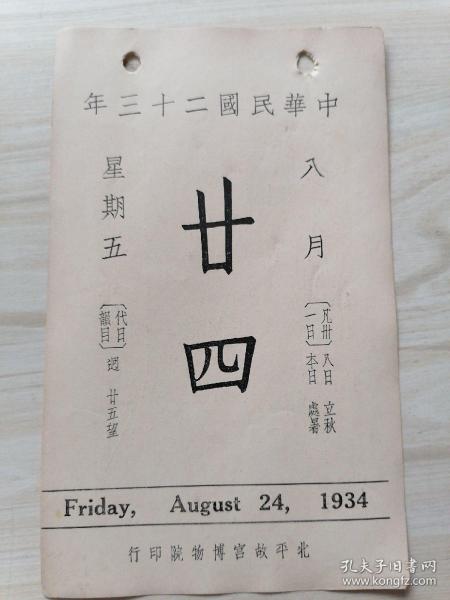 中華民國二十三年
八月
〔凡卅一日〕
八日 立秋
本日 處暑
廿四
星期五
〔代日韻目〕迥 廿五望
Friday, August 24, 1934
北平故宮博物院印行
孔夫子旧书网
book.kongfz.com